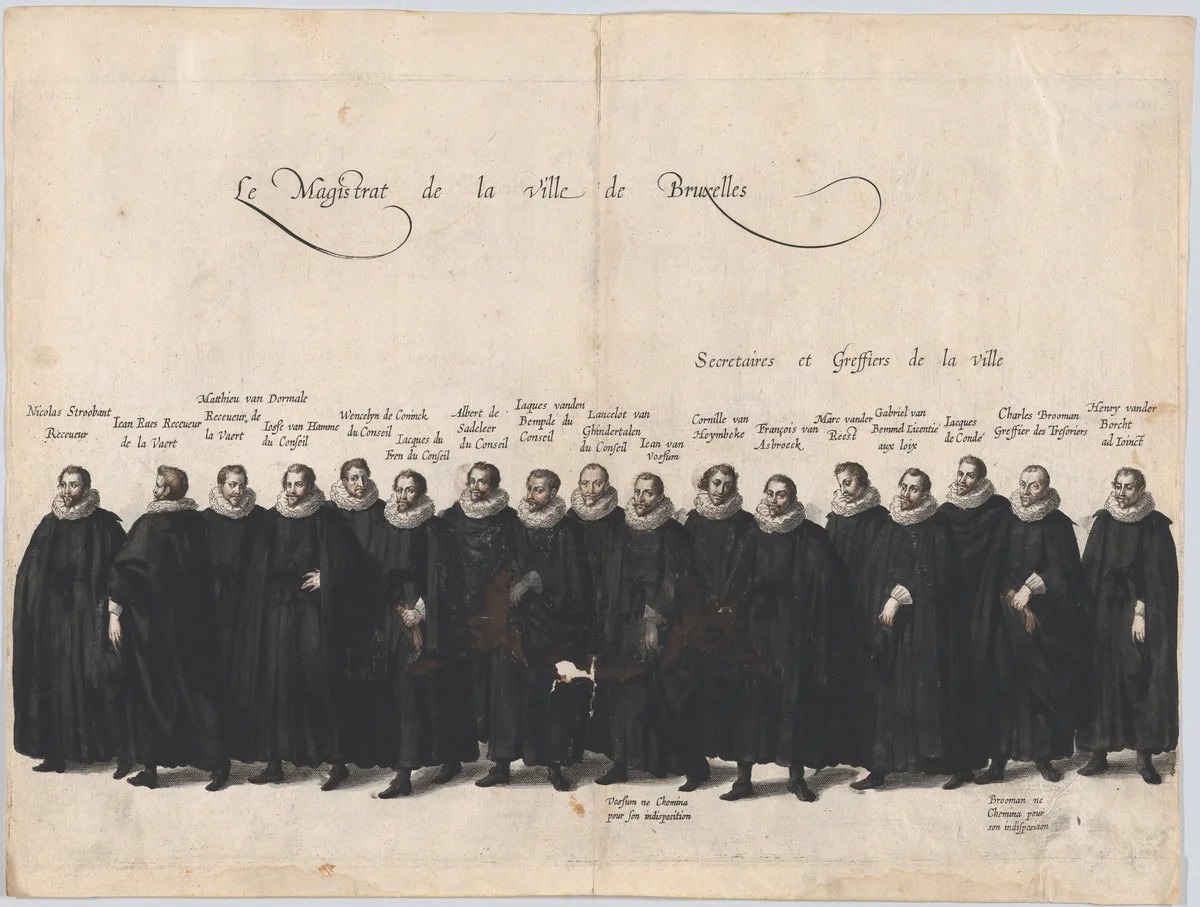 Le Magistrat de la Ville de Bruxelles
Secretaires et Greffiers de la ville
Nicolas Stroobant
Receveur
Iean Raes Receueur
de la Vaert
Matthieu van Dormale
Receueur de
la Vaert
Iosse van Hamme
du Conseil
Wencelyn de Coninck
du Conseil
Iacques du
Fren du Conseil
Albert de
Sadeleer
du Conseil
Iaques vanden
Bempde du
Conseil
Lancelot van
Ghindertalen
du Conseil
Iean van
Vossum
Cornille van
Heymbeke
François van
Asbroeck
Marc vander
Reest
Gabriel van
Bemmel Licentie
aux loix
Iacques
de Condé
Charles Brooman
Greffier des Tresoriers
Henry vander
Borcht
ad Ioinct
Vossum ne Chemina
pour son indisposition
Brooman ne
Chemina pour
son indisposition